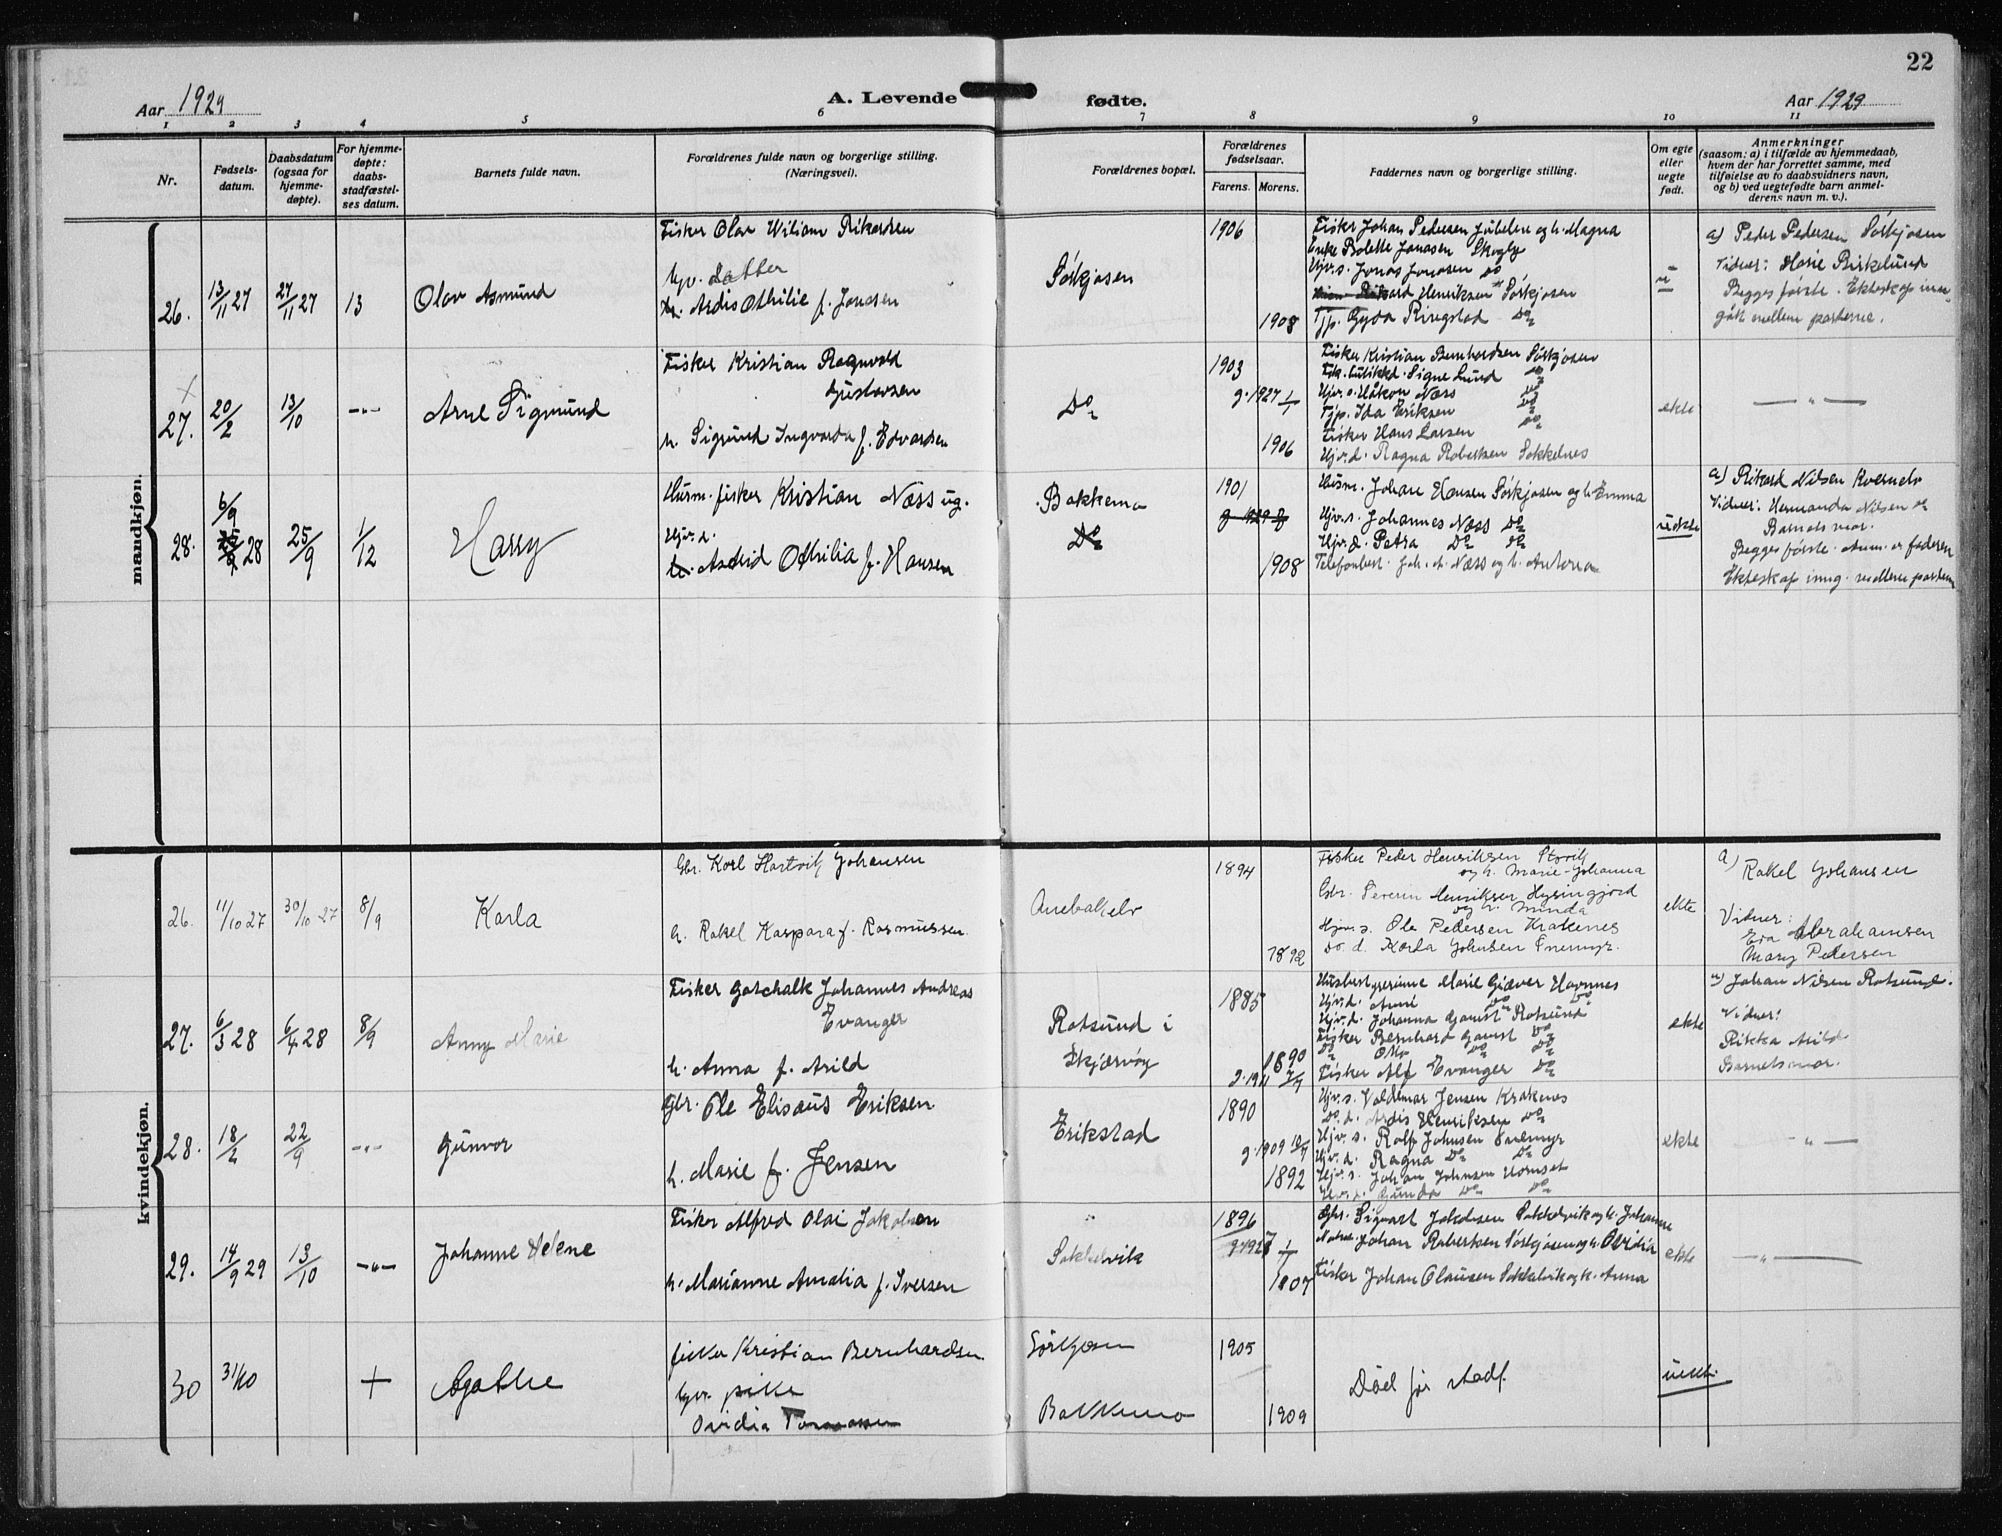 22
Aar 1929
A. Levende fødte.
Aar 1929
1 2 3 4 5 6 7 8 9 10 11
Nr.
Fødsels-
datum.
Daabsdatum
(ogsaa for
hjemme-
døpte).
For hjemme-
døpte:
daabs-
stadfæstel-
ses datum.
Barnets fulde navn.
Forældrenes fulde navn og borgerlige stilling.
(Næringsvei).
Forældrenes bopæl.
Forældrenes
fødselsaar.
Farens. Morens.
Faddernes navn og borgerlige stilling.
Om egte
eller
uegte
født.
Anmerkninger
(saasom: a) i tilfælde av hjemmedaab,
hvem der har forrettet samme, med
tilføielse av to daabsvidners navn,
og b) ved uegtefødte barn anmel-
derens navn m. v.).
mandkjøn.
26.
13/11 27
27/11 27
13
Olav Asmund
Fisker Olav Wiliam Rikardsen
Hjv. datter
Ardis Othilie f. Jonasen
Sørkjosen
1906
1908
Fisker Johan Pedersen Jubelen og h. Magna
Enke Bolette Jonasen Skogly
Hjv. s. Jonas Jonasen do
Rikard Henriksen Sørkjosen
Tjp. Gyda Ringstad Do
a) Peder Pedersen Sørkjosen
Vidner: Marie Birkelund
Begges første. Ekteskap inn-
gått mellem partene.
27.
20/2
13/10
-"-
Arne Sigmund
Fisker Kristian Ragnvald
Gustavsen
h. Sigrund Ingvarda f. Edvardsen
Do
1903
g. 1927 1/1
1906
Fisker Kristian Bernhardsen Sørkjosen
Signe Lund do
Hjv. s. Håkon Næss do
Tjp. Ida Eriksen Do
Fisker Hans Larsen do
Hjv. d. Ragna Robertsen Sokkelnes
ekte
— " —
28.
6/9
28
25/9
1/12
Harry
Husm. fisker Kristian Næss ug.
Hjv. d.
h. Astrid Othilia f. Hansen
Bakkemo
Do
1901
1908
Husm. Johan Hansen Sørkjosen og h. Emma
Hjv. s. Johannes Næss Do
Hjv. d. Petra Do do
Telefonbest. Joh. A. Næss og h. Antona
uekte
a) Rikard Nilsen Kvernelv
Vidner: Hermanda Nilsen og
Barnets mor.
Begges første. Anm. er faderen
Ekteskap inng. mellem partene
kvindekjøn.
26.
11/10 27
30/10 27
8/9
Karla
Gbr. Karl Hartvik Johansen
h. Rakel Kaspara f. Rasmussen
1894
1892
Fisker Peder Henriksen Storvik
og h. Marie-Johanna
Gbr. Severin Henriksen Hysingjord
og h. Minda
Hjv. s. Ole Pedersen Krakenes
do d. Karla Johnsen Snemyr.
ekte
a) Rakel Johansen
Vidner:
Eva Abrahamsen
Mary Pedersen
27.
6/3 28
6/4 28
8/9
Anny Marie
Fisker Gotchalk Johannes Andreas
Evanger
h. Anna f. Arild
Rotsund i
Skjærvøy
1885
1890
g. 1911
Marie Giæver Havnnes
Hjv. d. Anni do do
Hjv. d. Johanna Gamst Rotsund
Fisker Bernhard Gamst do
Do Otto do do
Fisker Alf Evanger Do
ekte
a) Johan Nilsen Rotsund.
Vidner:
Rikka Arild
Barnets mor.
28.
18/2
22/9
-"-
Gunvor
Gbr. Ole Elisæus Eriksen
h. Marie f. Jensen
Erikstad
1890
g. 1909
1892
Hjv. s. Valdemar Jensen Krakenes
Do. d. Ardis Henriksen Do
Hjv. s. Rolf Johnsen Snemyr
Hjv. d. Ragna Do Do
Hjv. s. Johan Johnsen Uornset
Hjv. d. Gunda do do
ekte
- " —
29.
14/9 29
13/10
-"-
Johanne Helene
Fisker Alfred Olai Jakobsen
h. Marianne Amalia f. Iversen
Sokkelvik
1896
1907
Gbr. Sigvart Jakobsen Sokkelvik og h. Johanne
Johan Robertsen Sørkjosen og h. Ovidia
Fisker Johan Olausen Sokkelvik og h. Anna
ekte
— " —
30
31/10
+
Agathe
fisker Kristian Bernhardsen
hjv. pike
Ovidia Tomassen
Sørkjosen
Bakkemo
1905
1909
Død før stadf.
uekte